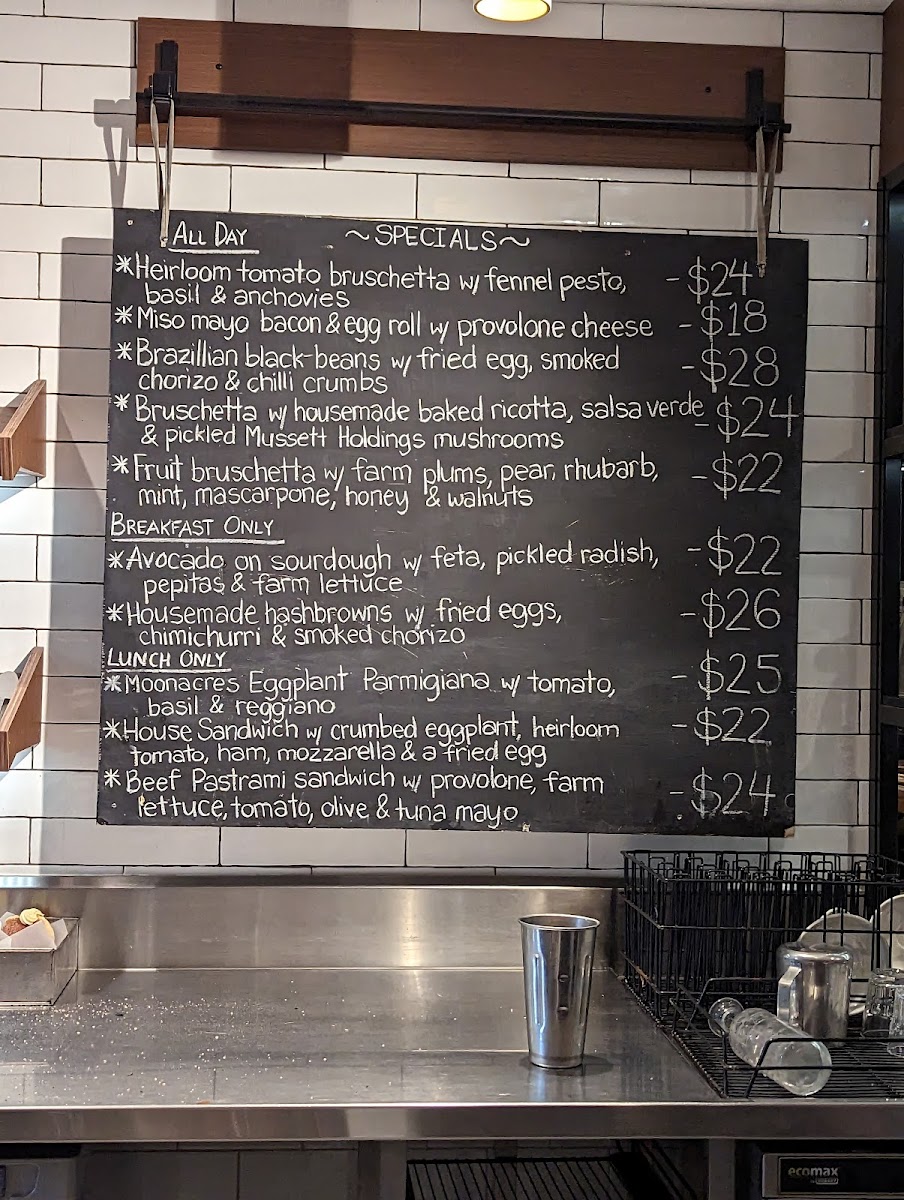 ALL DAY ~SPECIALS~
*Heirloom tomato bruschetta w/ fennel pesto, -$24
basil & anchovies
*Miso mayo bacon & egg roll w/ provolone cheese -$18
*Brazillian black-beans w/ fried egg, smoked -$28
chorizo & chilli crumbs
*Bruschetta w/ housemade baked ricotta, salsa verde -$24
& pickled Mussett Holdings mushrooms
*Fruit bruschetta w/ farm plums, pear, rhubarb, -$22
mint, mascarpone, honey & walnuts
BREAKFAST ONLY
*Avocado on sourdough w/ feta, pickled radish, -$22
pepitas & farm lettuce
*Housemade hashbrowns w/ fried eggs, -$26
chimichurri & smoked chorizo
LUNCH ONLY
*Moonacres Eggplant Parmigiana w/ tomato, -$25
basil & reggiano
*House Sandwich w/ crumbed eggplant, heirloom -$22
tomato, ham, mozzarella & a fried egg
*Beef Pastrami sandwich w/ provolone, farm -$24
lettuce, tomato, olive & tuna mayo
ecomax